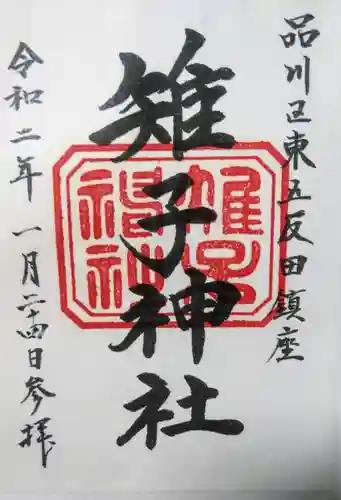 品川区東五反田鎮座
雉子神社
令和二年一月二十四日参拝
雉子
神社